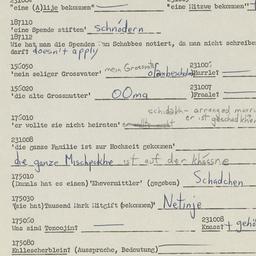 "eine (A)lije bekommen" "eine Hitzwe bekommen"
187110
'eine Spende stiften' schnödern
187112
Wie hat man die Spenden am Schabbes notiert, da man nicht schreiben
darf? doesn't apply
156050
'mein seliger Grossvater' mein Grossvater 231005
156020 231007
'die alte Grossmutter' OOma
echidakh - arranged marr
176010 er ist gesched khidekh
'er wollte sie nicht heiraten'
231008
'die ganze Familie ist zur Hochzeit gekommen'
die ganze Mischpokhe ist auf der khassne
175010
(Damals hat es einen) 'Ehevermittler' (gegeben) Schadchen
175030
(Sie hat) 'Tausend Mark Mitgift (bekommen)' Netinje
175050 231008
Was sind Tenoojim? Knass? + gehö
175080
Kallescherblein? (Aussprache, Bedeutung)